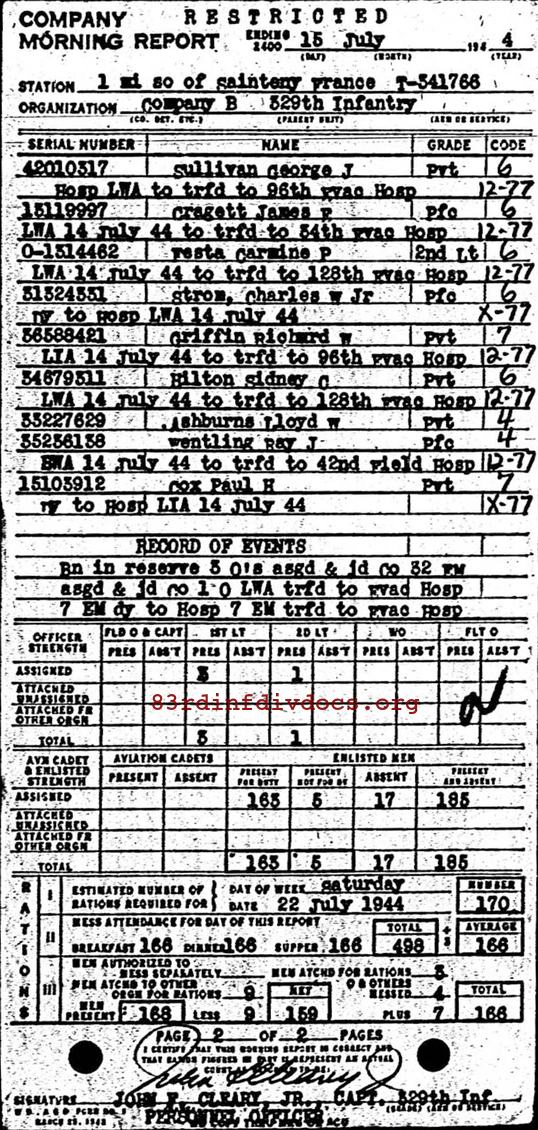 COMPANY RESTRICTED
MORNING REPORT ENDING 2400 15 July 194 4
(DAY) (MONTH) (YEAR)
STATION 1 mi so of sainteny France T-341766
ORGANIZATION Company B 329th Infantry
(CO. DET. ETC.) (PARENT UNIT) (ARM OR SERVICE)
SERIAL NUMBER NAME GRADE CODE
42010317 Sullivan George J Pvt 6
Hosp LWA to trfd to 96th Evac Hosp 12-77
13119997 Cragett James R Pfc 6
LWA 14 July 44 to trfd to 34th Evac Hosp 12-77
O-1314462 Festa Carmine P 2nd Lt 6
LWA 14 July 44 to trfd to 128th Evac Hosp 12-77
31324331 Strom, Charles W Jr Pfc 6
Dy to Hosp LWA 14 July 44 X-77
36588421 Griffin Richard W Pvt 7
LIA 14 July 44 to trfd to 96th Evac Hosp 12-77
34679311 Hilton Sidney C Pvt 6
LWA 14 July 44 to trfd to 128th Evac Hosp 12-77
33227629 Ashburns Lloyd W Pvt 4
35236138 Wentling Ray J Pfc 4
BWA 14 July 44 to trfd to 42nd Field Hosp 12-77
15103912 Cox Paul H Pvt 7
Dy to Hosp LIA 14 July 44 X-77
RECORD OF EVENTS
Bn in reserve 3 O's asgd & jd Co 32 EM
asgd & jd Co 1 O LWA trfd to Evac Hosp
7 EM dy to Hosp 7 EM trfd to Evac Hosp
OFFICER STRENGTH FLD O & CAPT 1ST LT 2D LT WO FLT O
PRES ABS'T PRES ABS'T PRES ABS'T PRES ABS'T PRES ABS'T
ASSIGNED 3 1
ATTACHED UNASSIGNED
ATTACHED FR OTHER ORGN
83rdinfdivdocs.org
TOTAL 3 1
AVN CADET & ENLISTED STRENGTH AVIATION CADETS ENLISTED MEN
PRESENT ABSENT PRESENT FOR DUTY PRESENT NOT FOR DY ABSENT PRESENT AND ABSENT
ASSIGNED 163 5 17 185
ATTACHED UNASSIGNED
ATTACHED FR OTHER ORGN
TOTAL 163 5 17 185
RATIONS
I ESTIMATED NUMBER OF RATIONS REQUIRED FOR DAY OF WEEK Saturday NUMBER
DATE 22 July 1944 170
II MESS ATTENDANCE FOR DAY OF THIS REPORT TOTAL ÷ 3 AVERAGE
BREAKFAST 166 DINNER 166 SUPPER 166 498 166
III MEN AUTHORIZED TO MESS SEPARATELY MEN ATCHD FOR RATIONS 3
MEN ATCHD TO OTHER ORGN FOR RATIONS 9 NET O & OTHERS MESSED 4 TOTAL
MEN PRESENT 168 LESS 9 159 PLUS 7 166
PAGE 2 OF 2 PAGES
I CERTIFY THAT THIS MORNING REPORT IS CORRECT AND
SIGNATURE JOHN F. CLEARY, JR., CAPT. 329th Inf.
PERSONNEL OFFICER